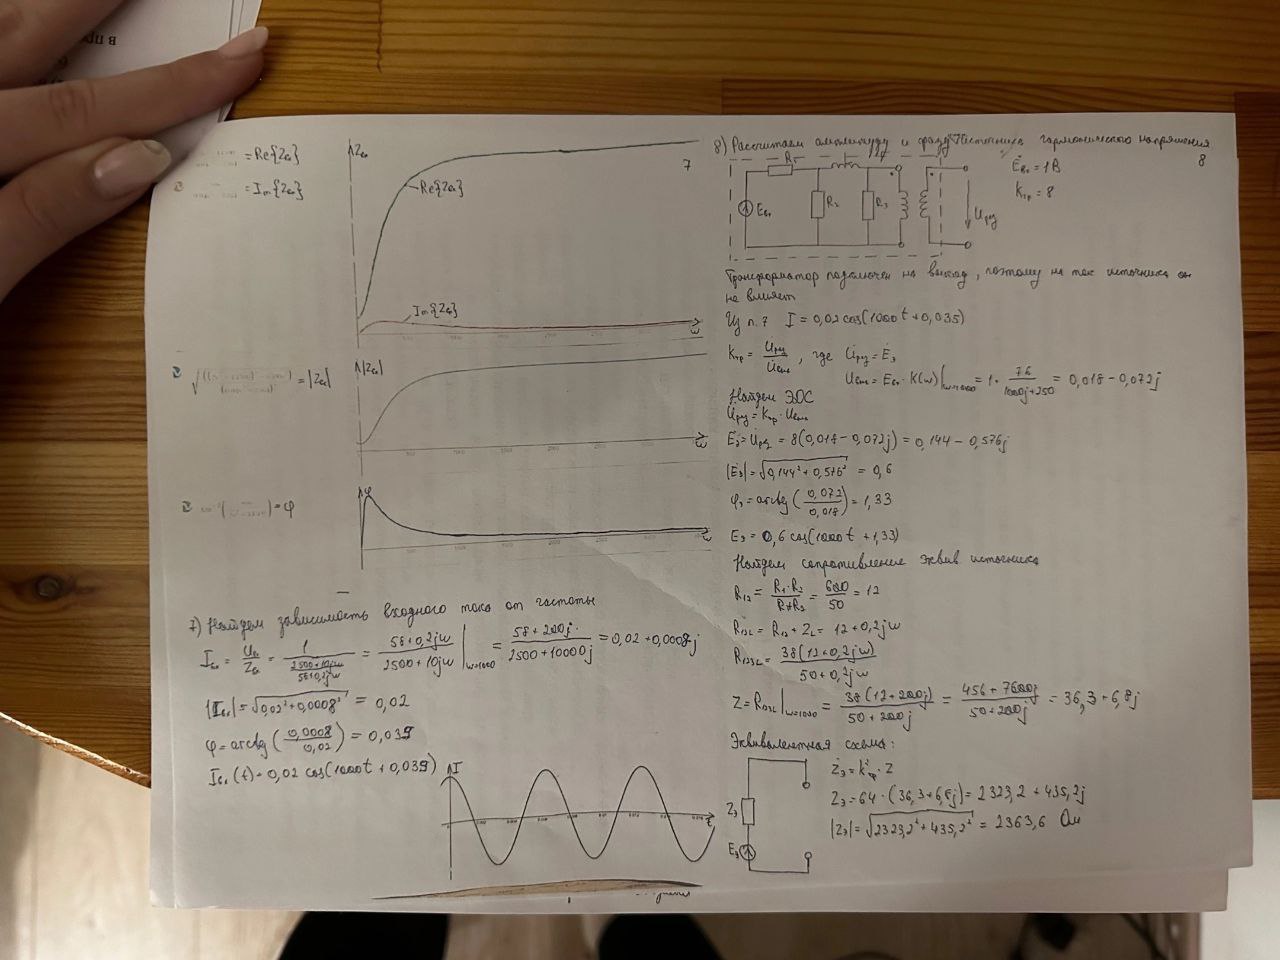 = Re{Zвх}
= Im{Zвх}
Zвх
7
Re{Zвх}
Im{Zвх}
ω
= |Zвх|
|Zвх|
ω
= φ
φ
ω
7) Найдем зависимость входного тока от частоты
Iвх = Uвх/Zвх = 1/((2500+10jω)/(58+0,2jω)) = (58+0,2jω)/(2500+10jω) |ω=1000 = (58+200j)/(2500+10000j) = 0,02 + 0,0008j
|Iвх| = √(0,02²+0,0008²) = 0,02
φ = arctg(0,0008/0,02) = 0,039
Iвх(t) = 0,02 cos(1000t + 0,039)
I
t
8) Рассчитаем амплитуду и фазу источника гармонического напряжения
8
R1
L
Eвх
R2
R3
Uру
Eвх = 1В
Kтр = 8
Трансформатор подключен на выход, поэтому на ток источника он
не влияет
Из п. 7 I = 0,02 cos(1000t + 0,035)
Kтр = Uру/Uвых, где Uру = Eэ
Uвых = Eвх · K(ω)|ω=1000 = 1 · 76/(1000j+250) = 0,018 - 0,072j
Найдем ЭДС
Uру = Kтр · Uвых
Eэ = Uру = 8(0,018 - 0,072j) = 0,144 - 0,576j
|Eэ| = √(0,144² + 0,576²) = 0,6
φэ = arctg(0,072/0,018) = 1,33
Eэ = 0,6 cos(1000t + 1,33)
Найдем сопротивление эквив. источника
R12 = R1·R2/(R1+R2) = 600/50 = 12
R12L = R12 + ZL = 12 + 0,2jω
R123L = 38(12+0,2jω)/(50+0,2jω)
Z = R123L|ω=1000 = 38(12+200j)/(50+200j) = (456+7600j)/(50+200j) = 36,3 + 6,8j
Эквивалентная схема:
Zэ
Eэ
Zэ = K²тр · Z
Zэ = 64 · (36,3+6,8j) = 2323,2 + 435,2j
|Zэ| = √(2323,2² + 435,2²) = 2363,6 Ом